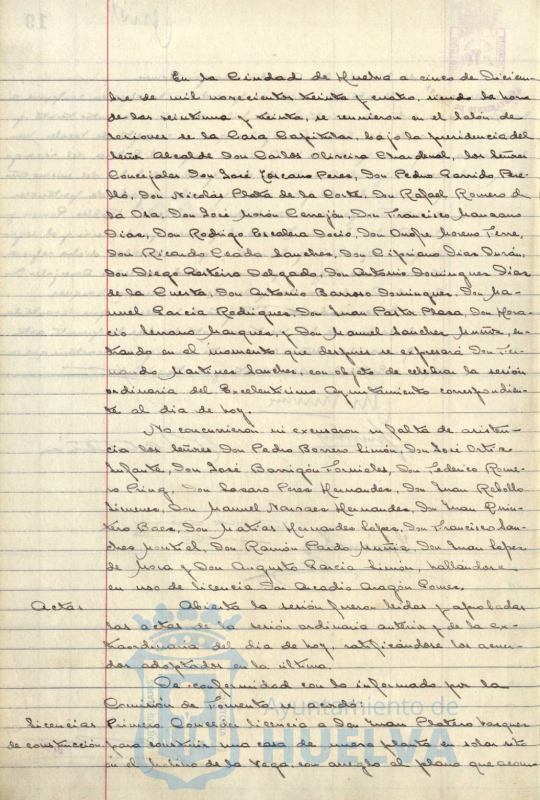 En la Ciudad de Huelva a cinco de Diciem-
bre de mil novecientos treinta y cuatro, siendo la hora
de las veintiuna y treinta, se reunieron en el Salón de
sesiones de la Casa Capitular, bajo la presidencia del
Señor Alcalde Don Carlos Oliveira Chardenal, los Señores
Concejales Don José Toscano Peres, Don Pedro Garrido Pe-
relló, Don Nicolás Plata de la Corte, Don Rafael Romero de
la Osa, Don José Morón Cerrejón, Don Francisco Manzano
Dias, Don Rodrigo Escalera Socio, Don Onofre Moreno Terre,
Don Ricardo Ceada Sanches, Don Cipriano Dias Durán,
Don Diego Delgado, Don Antonio Domingues Dias
de la Cuesta, Don Antonio Barroso Domingues, Don Ma-
nuel García Rodrigues, Don Juan Pastor Plasa, Don Hora-
cio Serrano Marques, y Don Manuel Sanches Muñiz, en-
trando en el momento que después se expresará Don Fer-
nando Martines Sanches, con objeto de celebrar la sesión
ordinaria del Excelentísimo Ayuntamiento correspondien-
te al día de hoy.
No concurrieron ni excusaron su falta de asisten-
cia los Señores Don Pedro Borrero Limón, Don José Ortis
Infante, Don José Barrigón Fornieles, Don Federico Rome-
ro Don Lazaro Peres Hernandes, Don Juan Rebollo
Jimenes, Don Manuel Narvaes Hernandes, Don Juan Quin-
tero Baes, Don Matías Hernandes Lopes, Don Francisco San-
ches Montiel, Don Ramón Pardo Muñiz, Don Juan Lopes
de Mora y Don Augusto Garcia Limón, hallándose
en uso de licencia Don Arcadio Aragón Gomes.
Actas Abierta la sesión fueron leidas y aprobadas
las actas de la sesión ordinaria anterior y de la ex-
traordinaria del día de hoy, ratificándose los acuer-
dos adoptados en la última.
De conformidad con lo informado por la
Comisión de Fomento se acordó:
Licencias Primero: Conceder licencia a Don Juan Platero Vasques
de construcción para construir una casa de nueva planta en solar sito
en el Molino de la Vega, con arreglo al plano que acom-
Ayuntamiento de
HUELVA